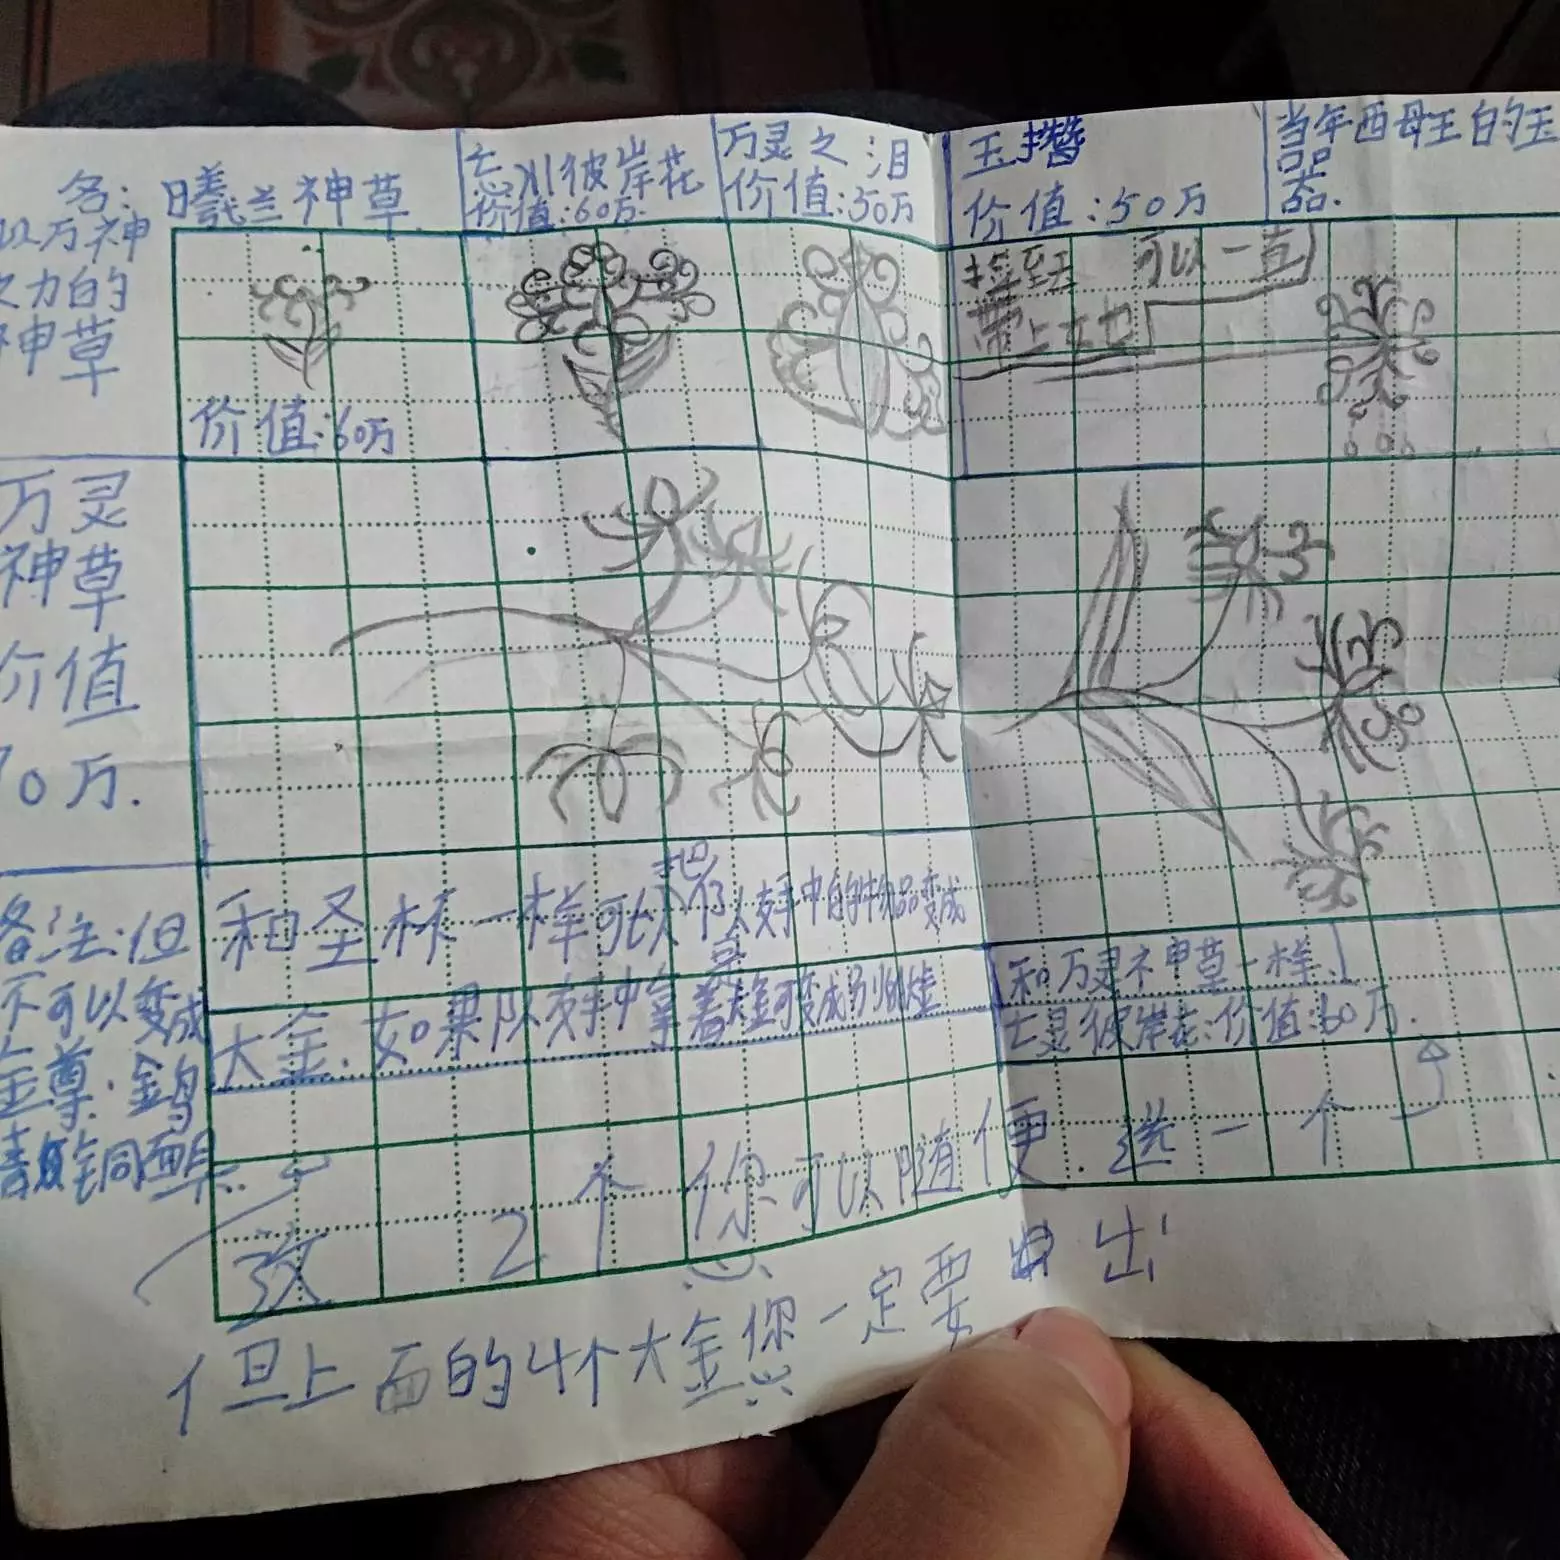 名：曦兰神草
万神
之力的
神草
价值：60万
忘川彼岸花
价值：60万
万灵之泪
价值：50万
玉簪
价值：50万
当年西母王的玉
器.
可以一直
带上
万灵
神草
价值
70万.
备注：但
不可以变成
金尊.金乌
青铜面具.
和圣杯一样可以把队友手中的物品变成
大金.如果队友手中拿着大金可变成别的
和万灵神草一样
七星彼岸花：价值：60万.
这2个你可以随便选一个
但上面的4个大金你一定要出